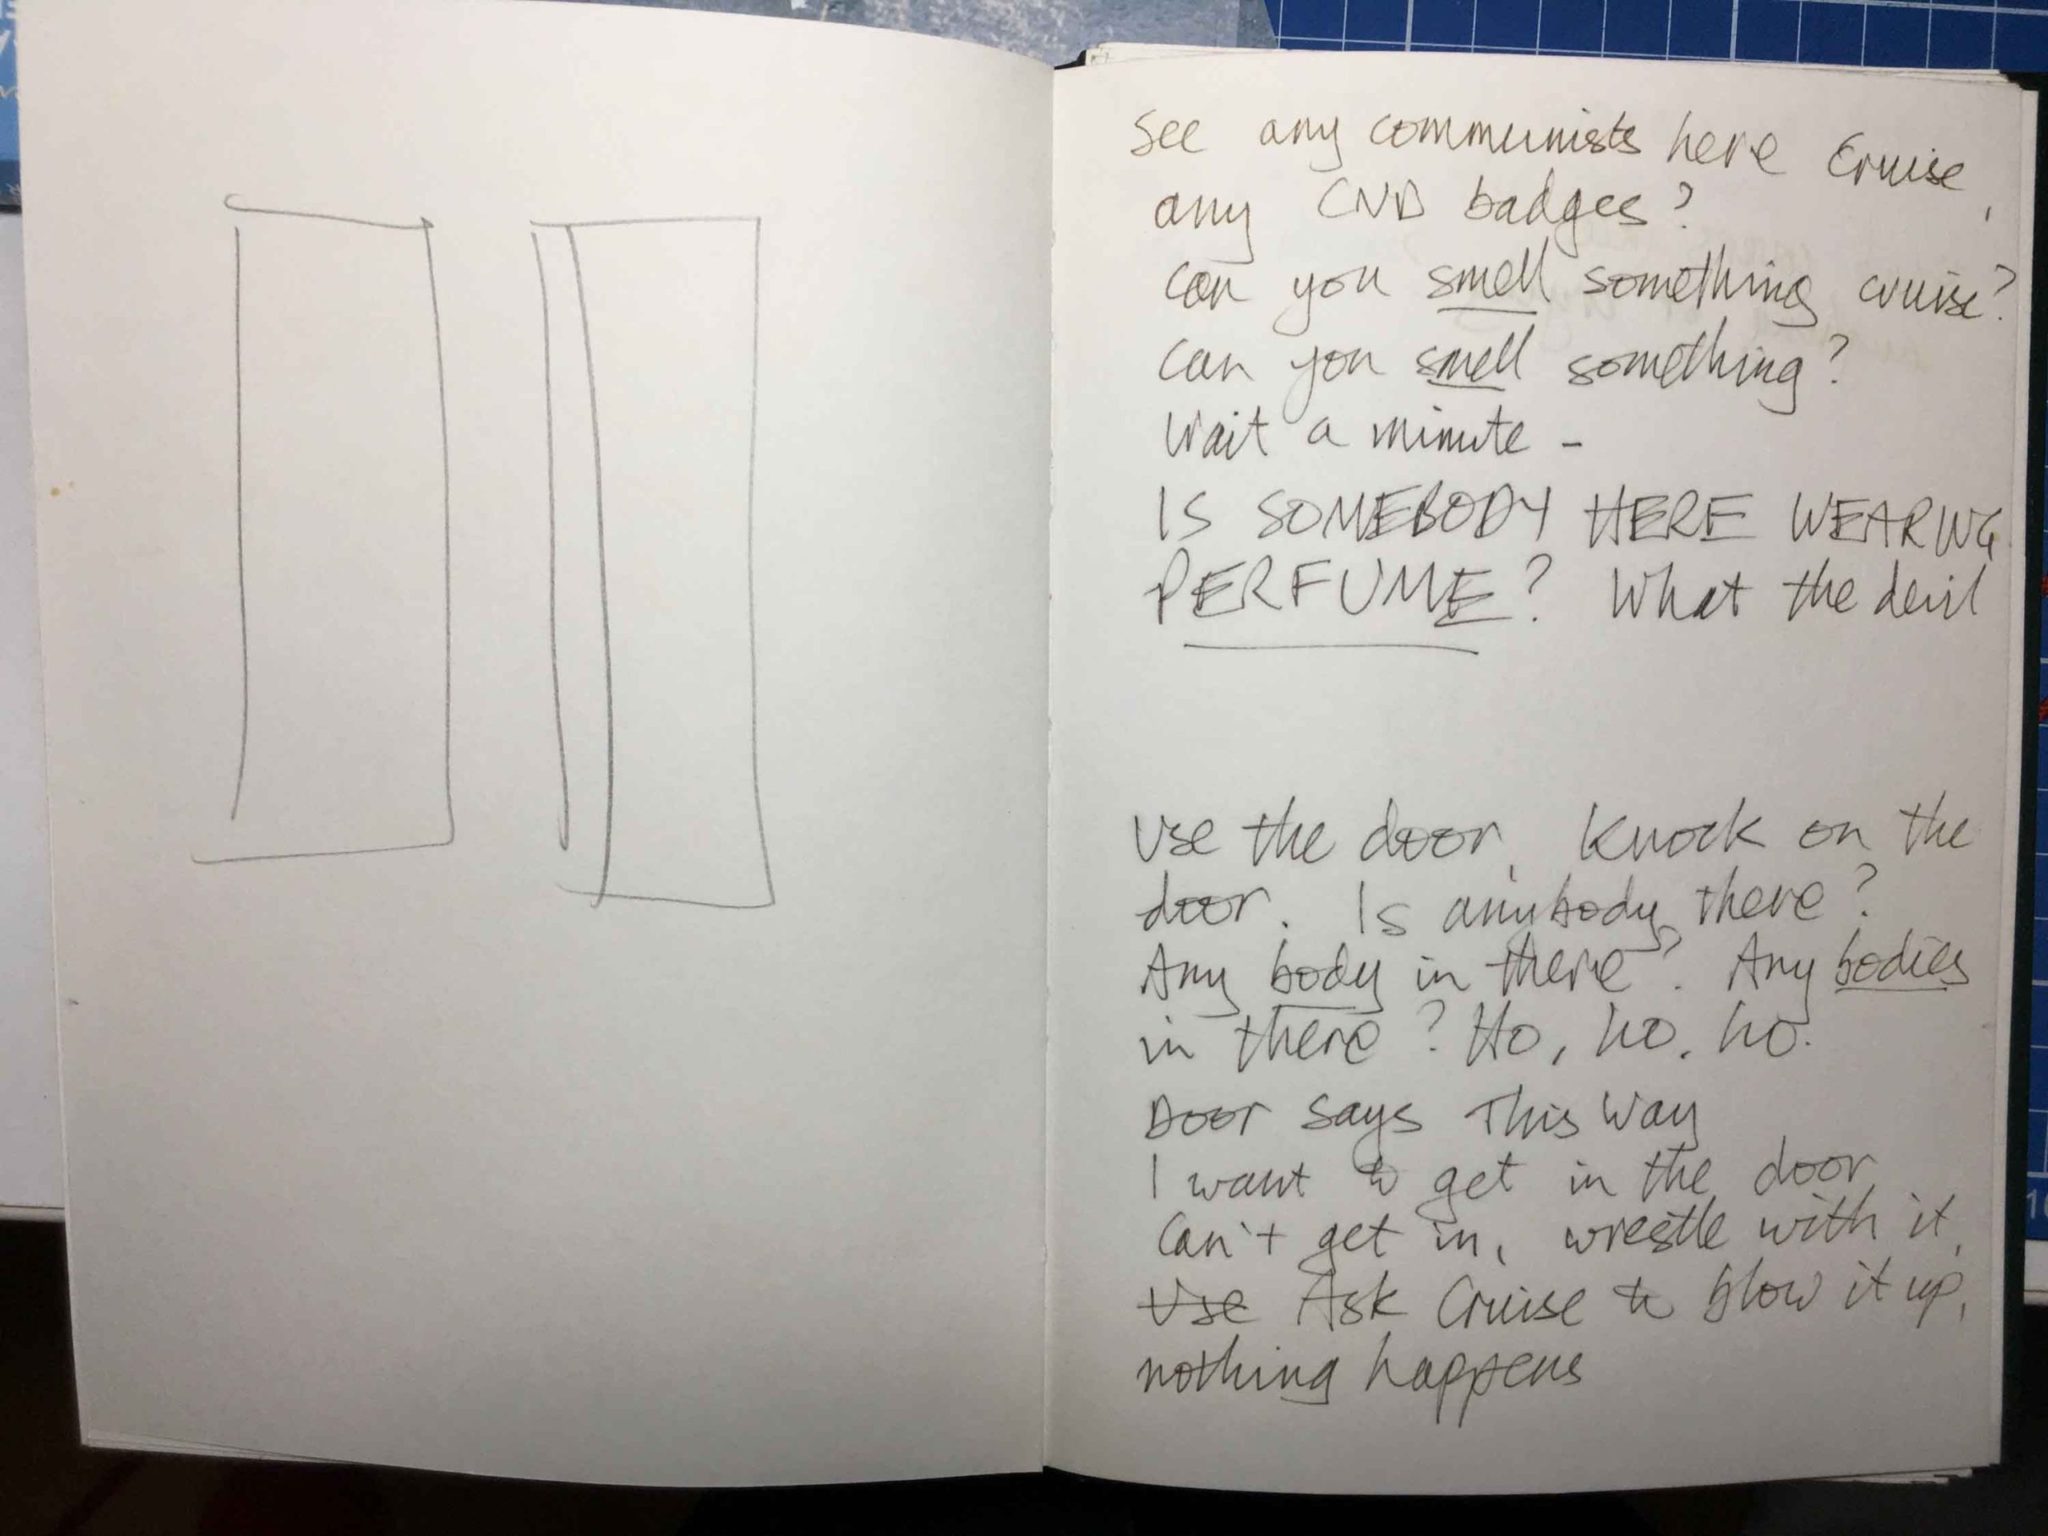 See any communists here Cruise,
any CND badges?
Can you smell something cruise?
Can you smell something?
Wait a minute -
IS SOMEBODY HERE WEARING
PERFUME? What the devil
Use the door. Knock on the
door. Is anybody there?
Any body in there? Any bodies
in there? Ho, ho, ho.
Door says This Way
I want to get in the door
Can't get in, wrestle with it,
Use Ask Cruise to blow it up,
nothing happens